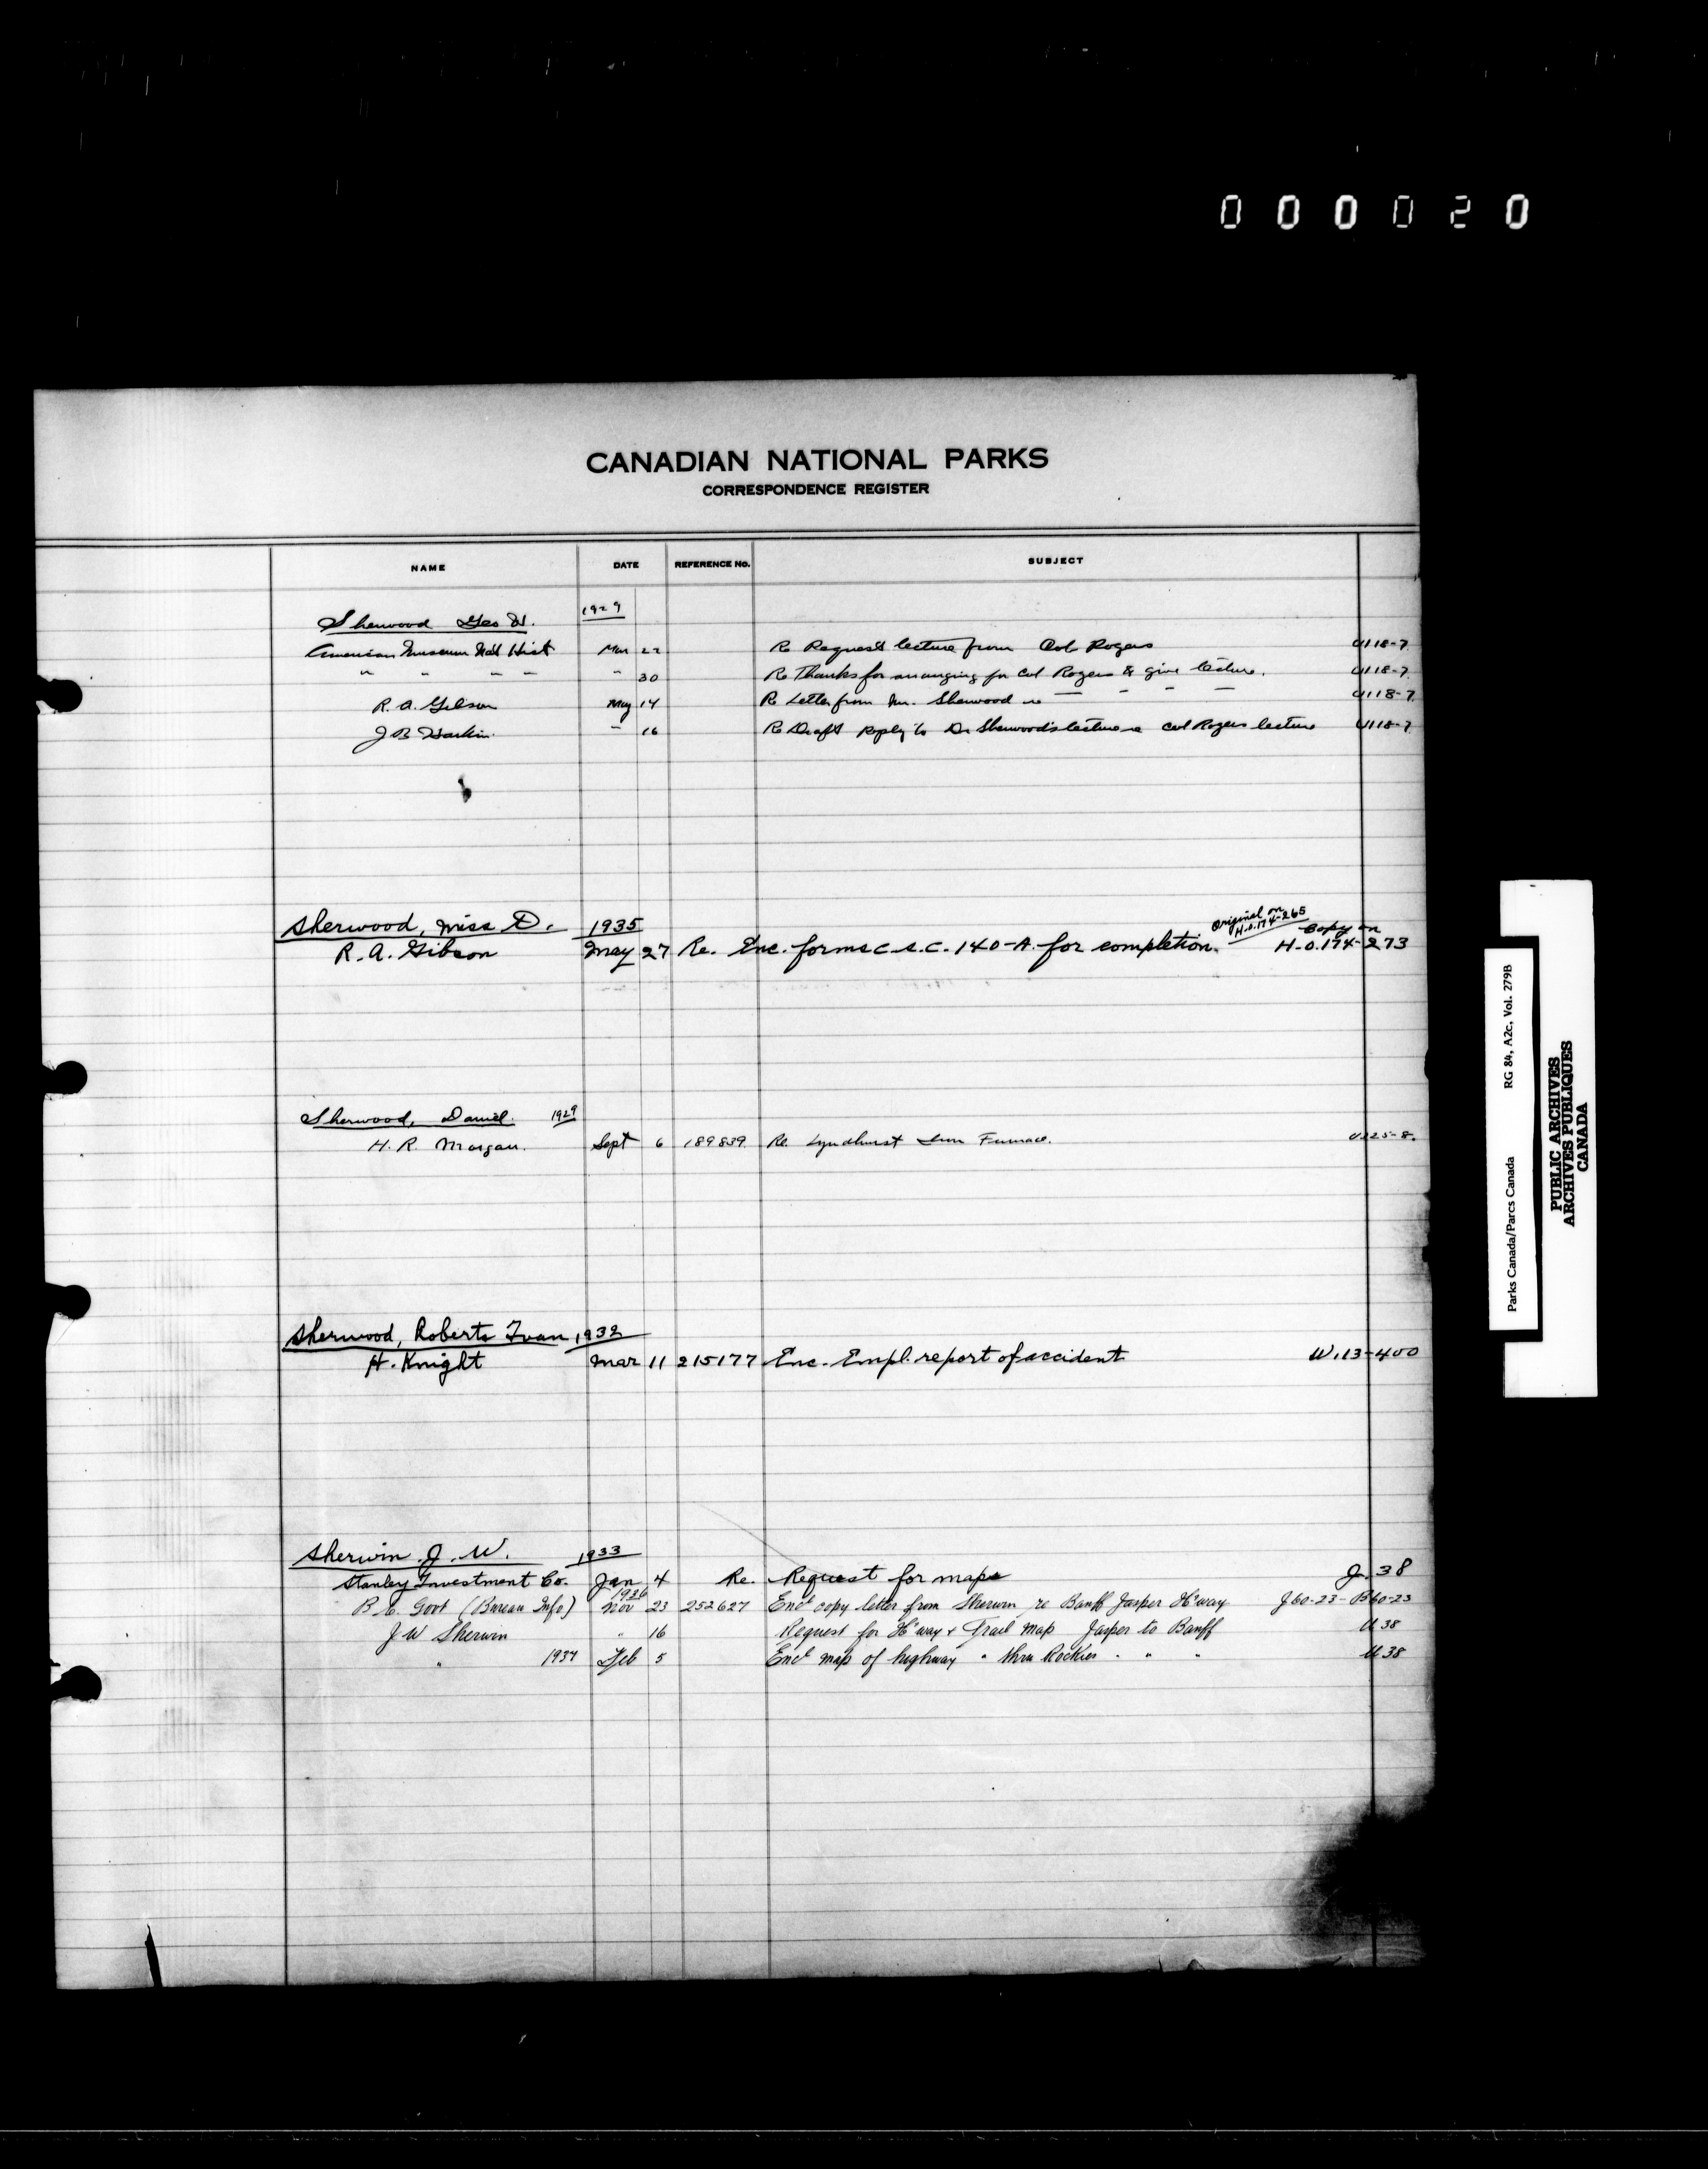 000020
CANADIAN NATIONAL PARKS
CORRESPONDENCE REGISTER
NAME DATE REFERENCE NO. SUBJECT
Sherwood Geo H. 1929
American Museum Natl Hist Mar 22 Re Request lecture from Col. Rogers U118-7
" " " " " 30 Re Thanks for arranging for Col Rogers to give lecture. U118-7
R. A. Gibson May 14 Re Letter from Mr. Sherwood re — " " — U118-7
J B Harkin " 16 Re Draft reply to Dr Sherwood's lecture re Col Rogers lecture U118-7
Sherwood, Miss D. 1935 Original on H.O.174-265 Copy on
R. A. Gibson May 27 Re. Enc. forms C.S.C. 140-A. for completion. H.O.174-273
Sherwood, Daniel. 1929
H. R. Morgan. Sept 6 189839. Re. Lyndhurst Iron Furnace. U225-8.
Sherwood, Roberts Ivan 1932
H. Knight Mar 11 215177 Enc. Empl. report of accident W.113-400
Sherwin J. W. 1933
Stanley Investment Co. Jan 4 Re. Request for maps J.38
1936
B.C. Govt (Bureau Info) Nov 23 252627 Encl copy letter from Sherwin re Banff Jasper H'way J60-23-B60-23
J W Sherwin " 16 Request for H'way & Trail Map Jasper to Banff U 38
" 1937 Feb 5 Encl map of highway " thru Rockies " " " U 38
Parks Canada/Parcs Canada RG 84, A2c, Vol. 279B
PUBLIC ARCHIVES
ARCHIVES PUBLIQUES
CANADA